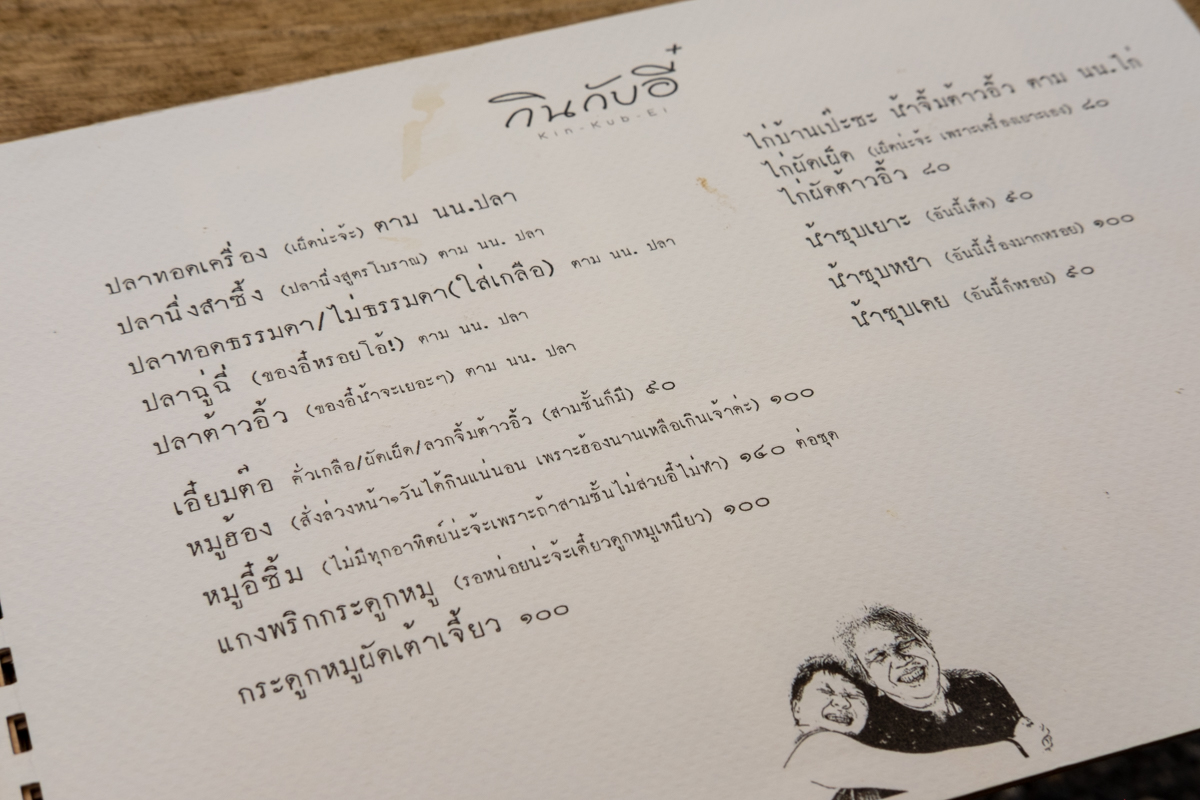 กินกับอี๋
Kin-Kub-Ei
ปลาทอดเครื่อง (เผ็ดน่ะจ้ะ) ตาม นน.ปลา
ปลานึ่งสำซึ้ง (ปลานึ่งสูตรโบราณ) ตาม นน. ปลา
ปลาทอดธรรมดา/ไม่ธรรมดา(ใส่เกลือ) ตาม นน. ปลา
ปลาฉู่ฉี่ (ของอี๋หรอยโอ้!) ตาม นน. ปลา
ปลาต้าวอิ้ว (ของอี๋น้ำจะเยอะๆ) ตาม นน. ปลา
เอี๋ยมต๊อ คั่วเกลือ/ผัดเผ็ด/ลวกจิ้มต้าวอิ้ว (สามชั้นก็มี) ๙๐
หมูฮ้อง (สั่งล่วงหน้า๑วันได้กินแน่นอน เพราะฮ้องนานเหลือเกินเจ้าค่ะ) ๑๐๐
หมูอี๋ซิ้ม (ไม่มีทุกอาทิตย์น่ะจ้ะเพราะถ้าสามชั้นไม่สวยอี๋ไม่ทำ) ๑๔๐ ต่อชุด
แกงพริกกระดูกหมู (รอหน่อยน่ะจ้ะเดี๋ยวดูกหมูเหนียว) ๑๐๐
กระดูกหมูผัดเต้าเจี้ยว ๑๐๐
ไก่บ้านเป๊ะซะ น้ำจิ้มต้าวอิ้ว ตาม นน.ไก่
ไก่ผัดเผ็ด (เผ็ดน่ะจ้ะ เพราะเครื่องเยอะเอง) ๘๐
ไก่ผัดต้าวอิ้ว ๘๐
น้ำชุบเยาะ (อันนี้เด็ด) ๙๐
น้ำชุบหยำ (อันนี้เรื่องมากหรอย) ๑๐๐
น้ำชุบเคย (อันนี้ก็หรอย) ๙๐